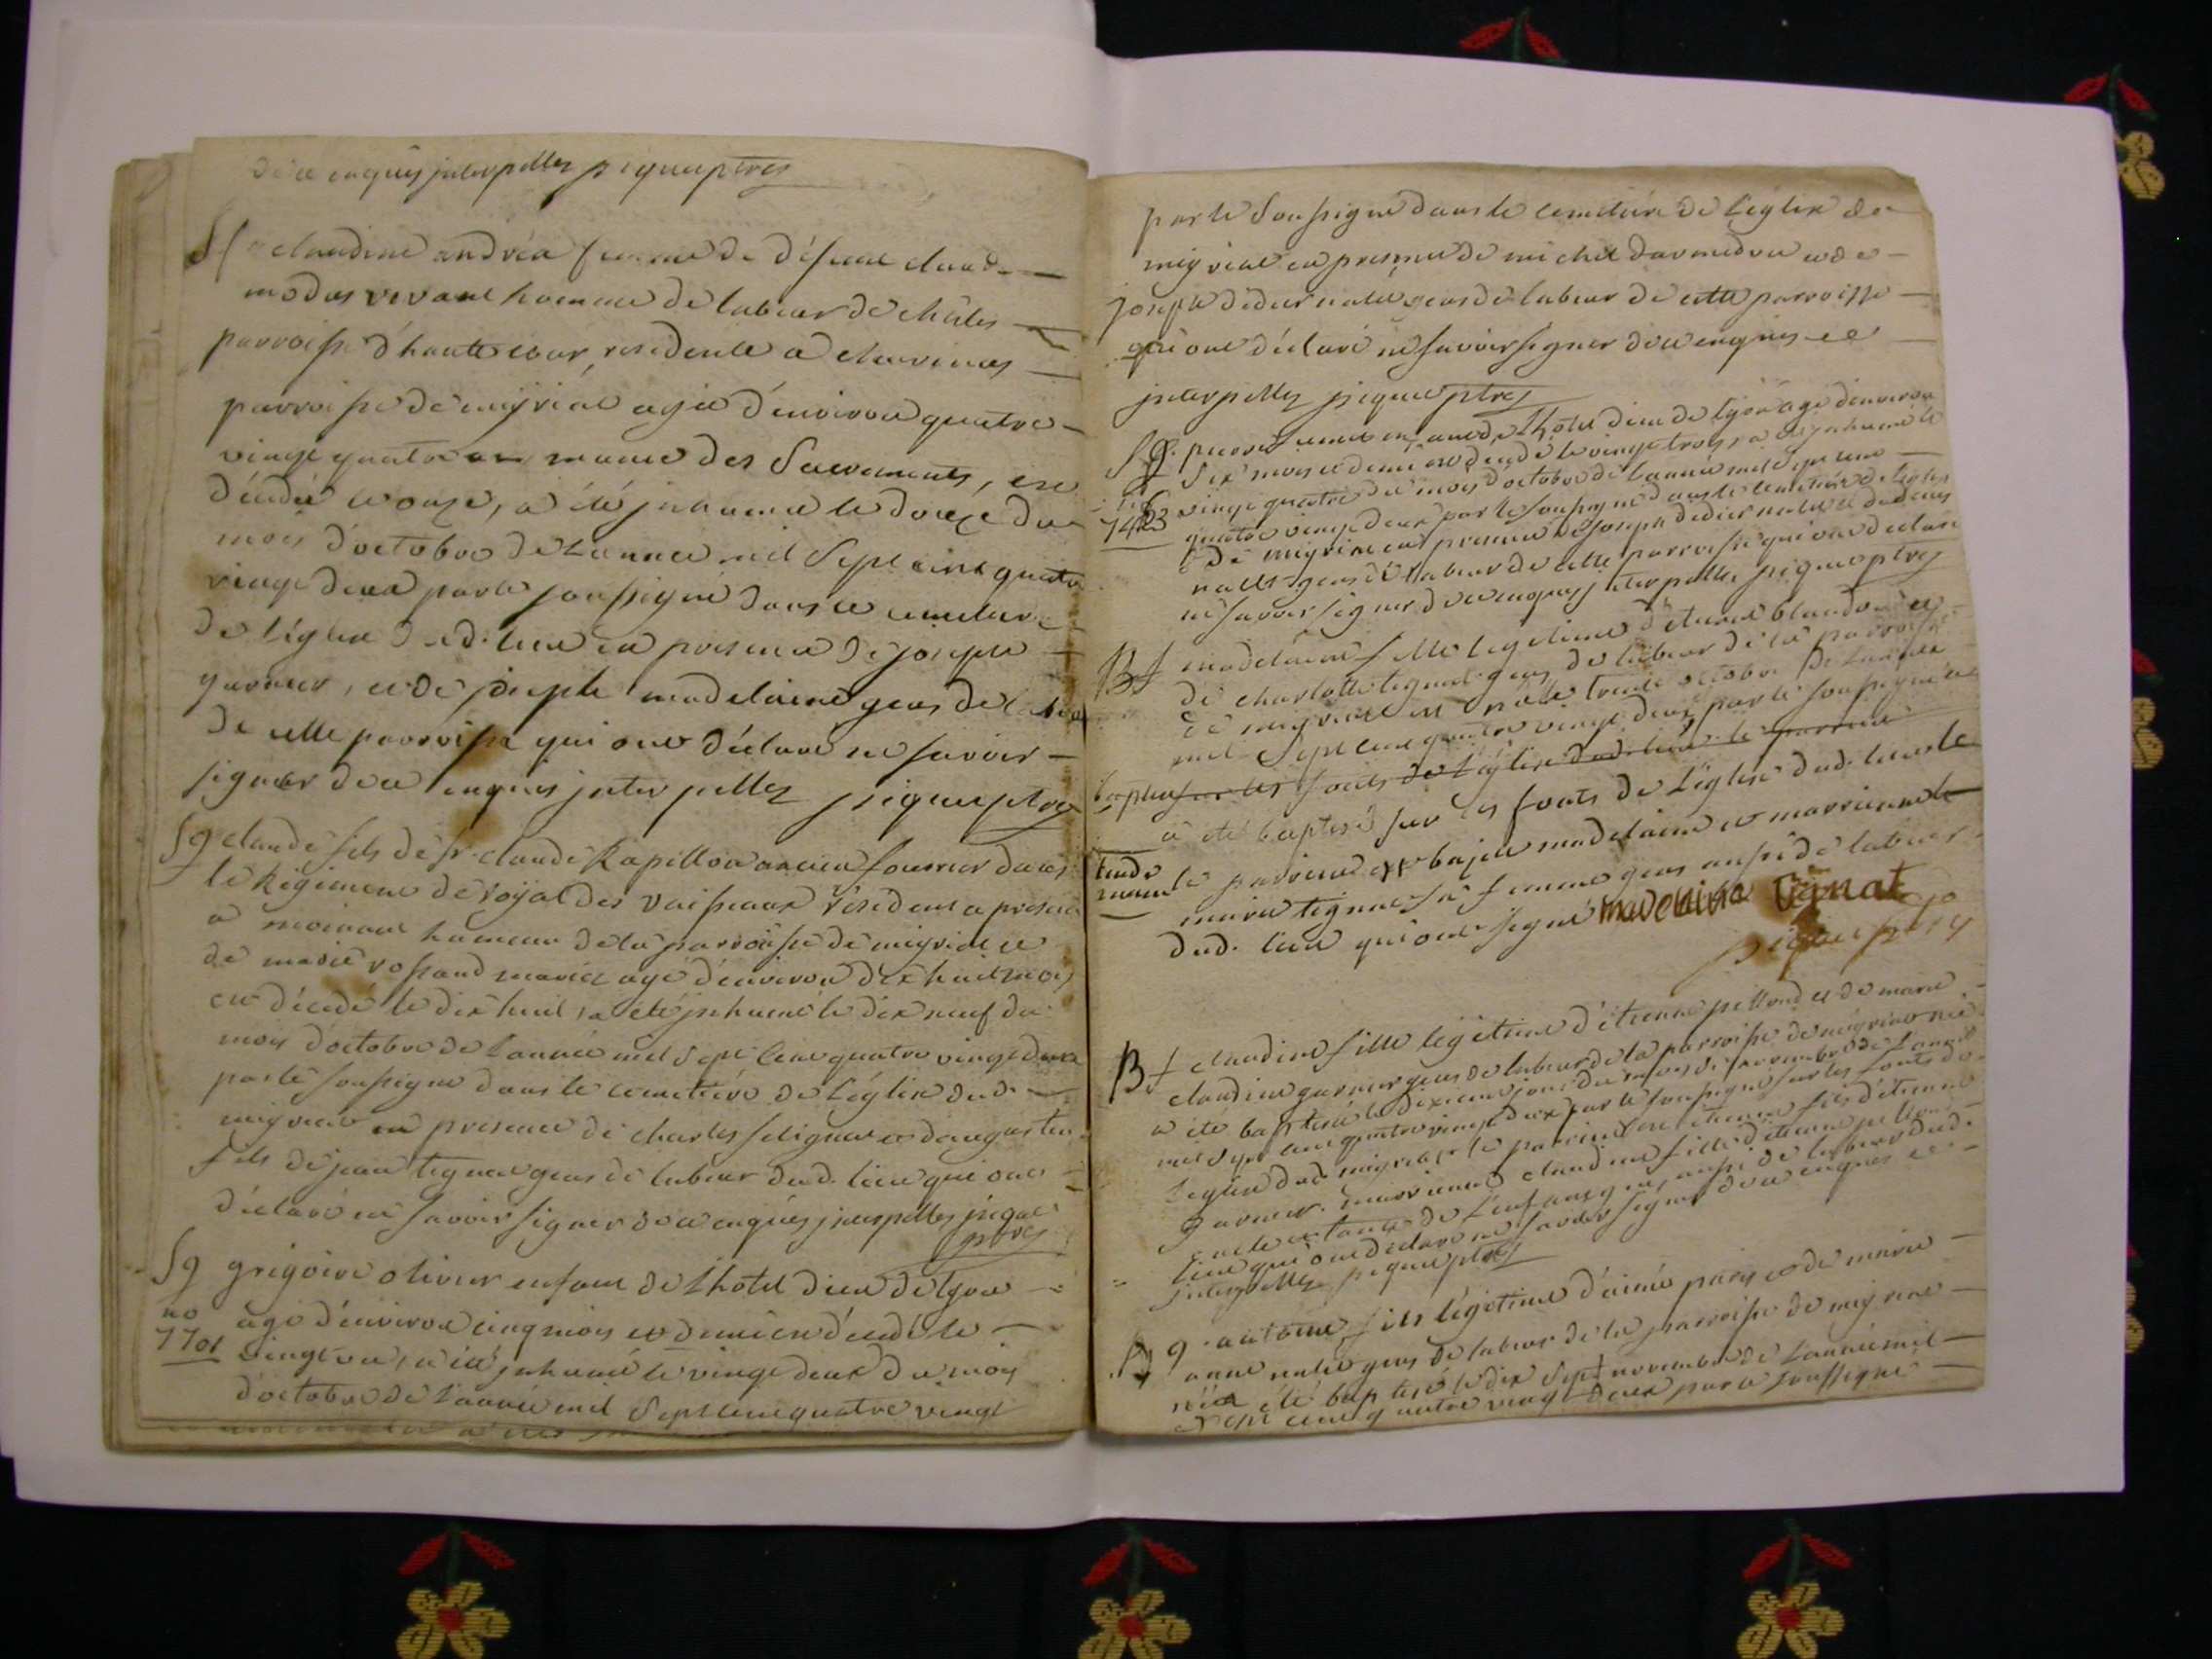 de ce enquis interpellez piqueptres
Sf claudine andréa femme de défunt claude
modas vivant homme de labeur de châles
parroisse d'hautecour, residente a chavinas
parroisse de meyriat agée d'environ quatre
vingt quatre ans munie des Sacrements, est
décédée le onze, a été inhumée le douze du
mois d'octobre de Lannée mil Sept cent quatre
vingt deux par le soussigné dans le cemetiere
de l'églize dud. lieu en presence de joseph
garnier, et de joseph madelaine gens de labeur
de cette parroisse qui ont déclaré ne savoir
signer de ce enquis interpellez piqueptres
Sg claude fils de sr claude Rapillon ancien fourrier dans
le Régiment de royal des Vaisseaux résident a present
a hameau de la parroisse de meyriat et
de marie mariés agé d'environ dix huit mois
est décédé le dix huit, a été inhumé le dix neuf du
mois d'octobre de Lannée mil Sept Cent quatre vingt deux
par le soussigné dans le cemetiére de L'églize dud.
meyriat en presence de charles et d'augustin
fils de jean tignat gens de labeur dud. lieu qui ont
déclaré ne savoir signer de ce enquis interpellez pique
ptres
Sg grégoire olivier enfant de L'hotel dieu de Lyon
no agé d'environ cinq mois et demi est décédé le
7701 vingt un, a été inhumé le vingt deux du mois
d'octobre de Lannée mil Sept cent quatre vingt
par le Soussigné dans le cemetiére de L'églize de
meyriat en presence de michel et de
joseph didier nalet gens de labeur de cette parroisse
qui ont déclaré ne savoir signer de ce enquis et
interpellez pique ptres
Sg. pierre enfant de L'hotel dieu de lyon agé d'environ
six mois et demi est décédé le vingt trois, a été inhumé le
vingt quatre du mois d'octobre de Lannée mil Sept cent
quatre vingt deux par le soussigné dans le cemetiére de L'eglize
de meyriat en presence de joseph didier nalet et de denis
nallet gens de labeur de cette parroisse qui ont déclaré
ne savoir signer de ce enquis interpellez piqueptres
Bf madelaine fille legitime d'etienne blandon et
de charlotte tignat gens de labeur de la parroisse
de meyriat est née le trente octobre de Lannée
mil Sept cent quatre vingt deux par le soussigné a
baptisé sur les fonts de l'églize dud. lieu. le parrein
a eté baptisé sur les fonts de L'église dud. lieu le
lende
main le parrein est bajet madelaine et marrienne
marie tignat sa femme gens aussi de labeur
dud. lieu qui ont signé madelaine tignat
pique ptres
Bf claudine fille légitime d'étienne pillond et de marie
claudine garnier gens de labeur de la parroisse de meyriat née
a été baptisée le dixieme jour du mois de novembre de Lannée
mil Sept cent quatre vingt deux par le soussigné sur les fonts de
L'églize dud. meyriat le parrein est étienne fils d'étienne
garnier. marrienne claudine fille d'étienne pillond
et tante de L'enfant gens aussi de labeur dud.
lieu qui ont déclaré ne savoir signer de ce enquis et
interpellez piqueptres
Bg antoine fils légitime d'aimé paris et de marie
anne nalet gens de labeur de la parroisse de meyriat
né a été baptisé le dix Sept novembre de Lannée mil
Sept cent quatre vingt deux par le soussigné